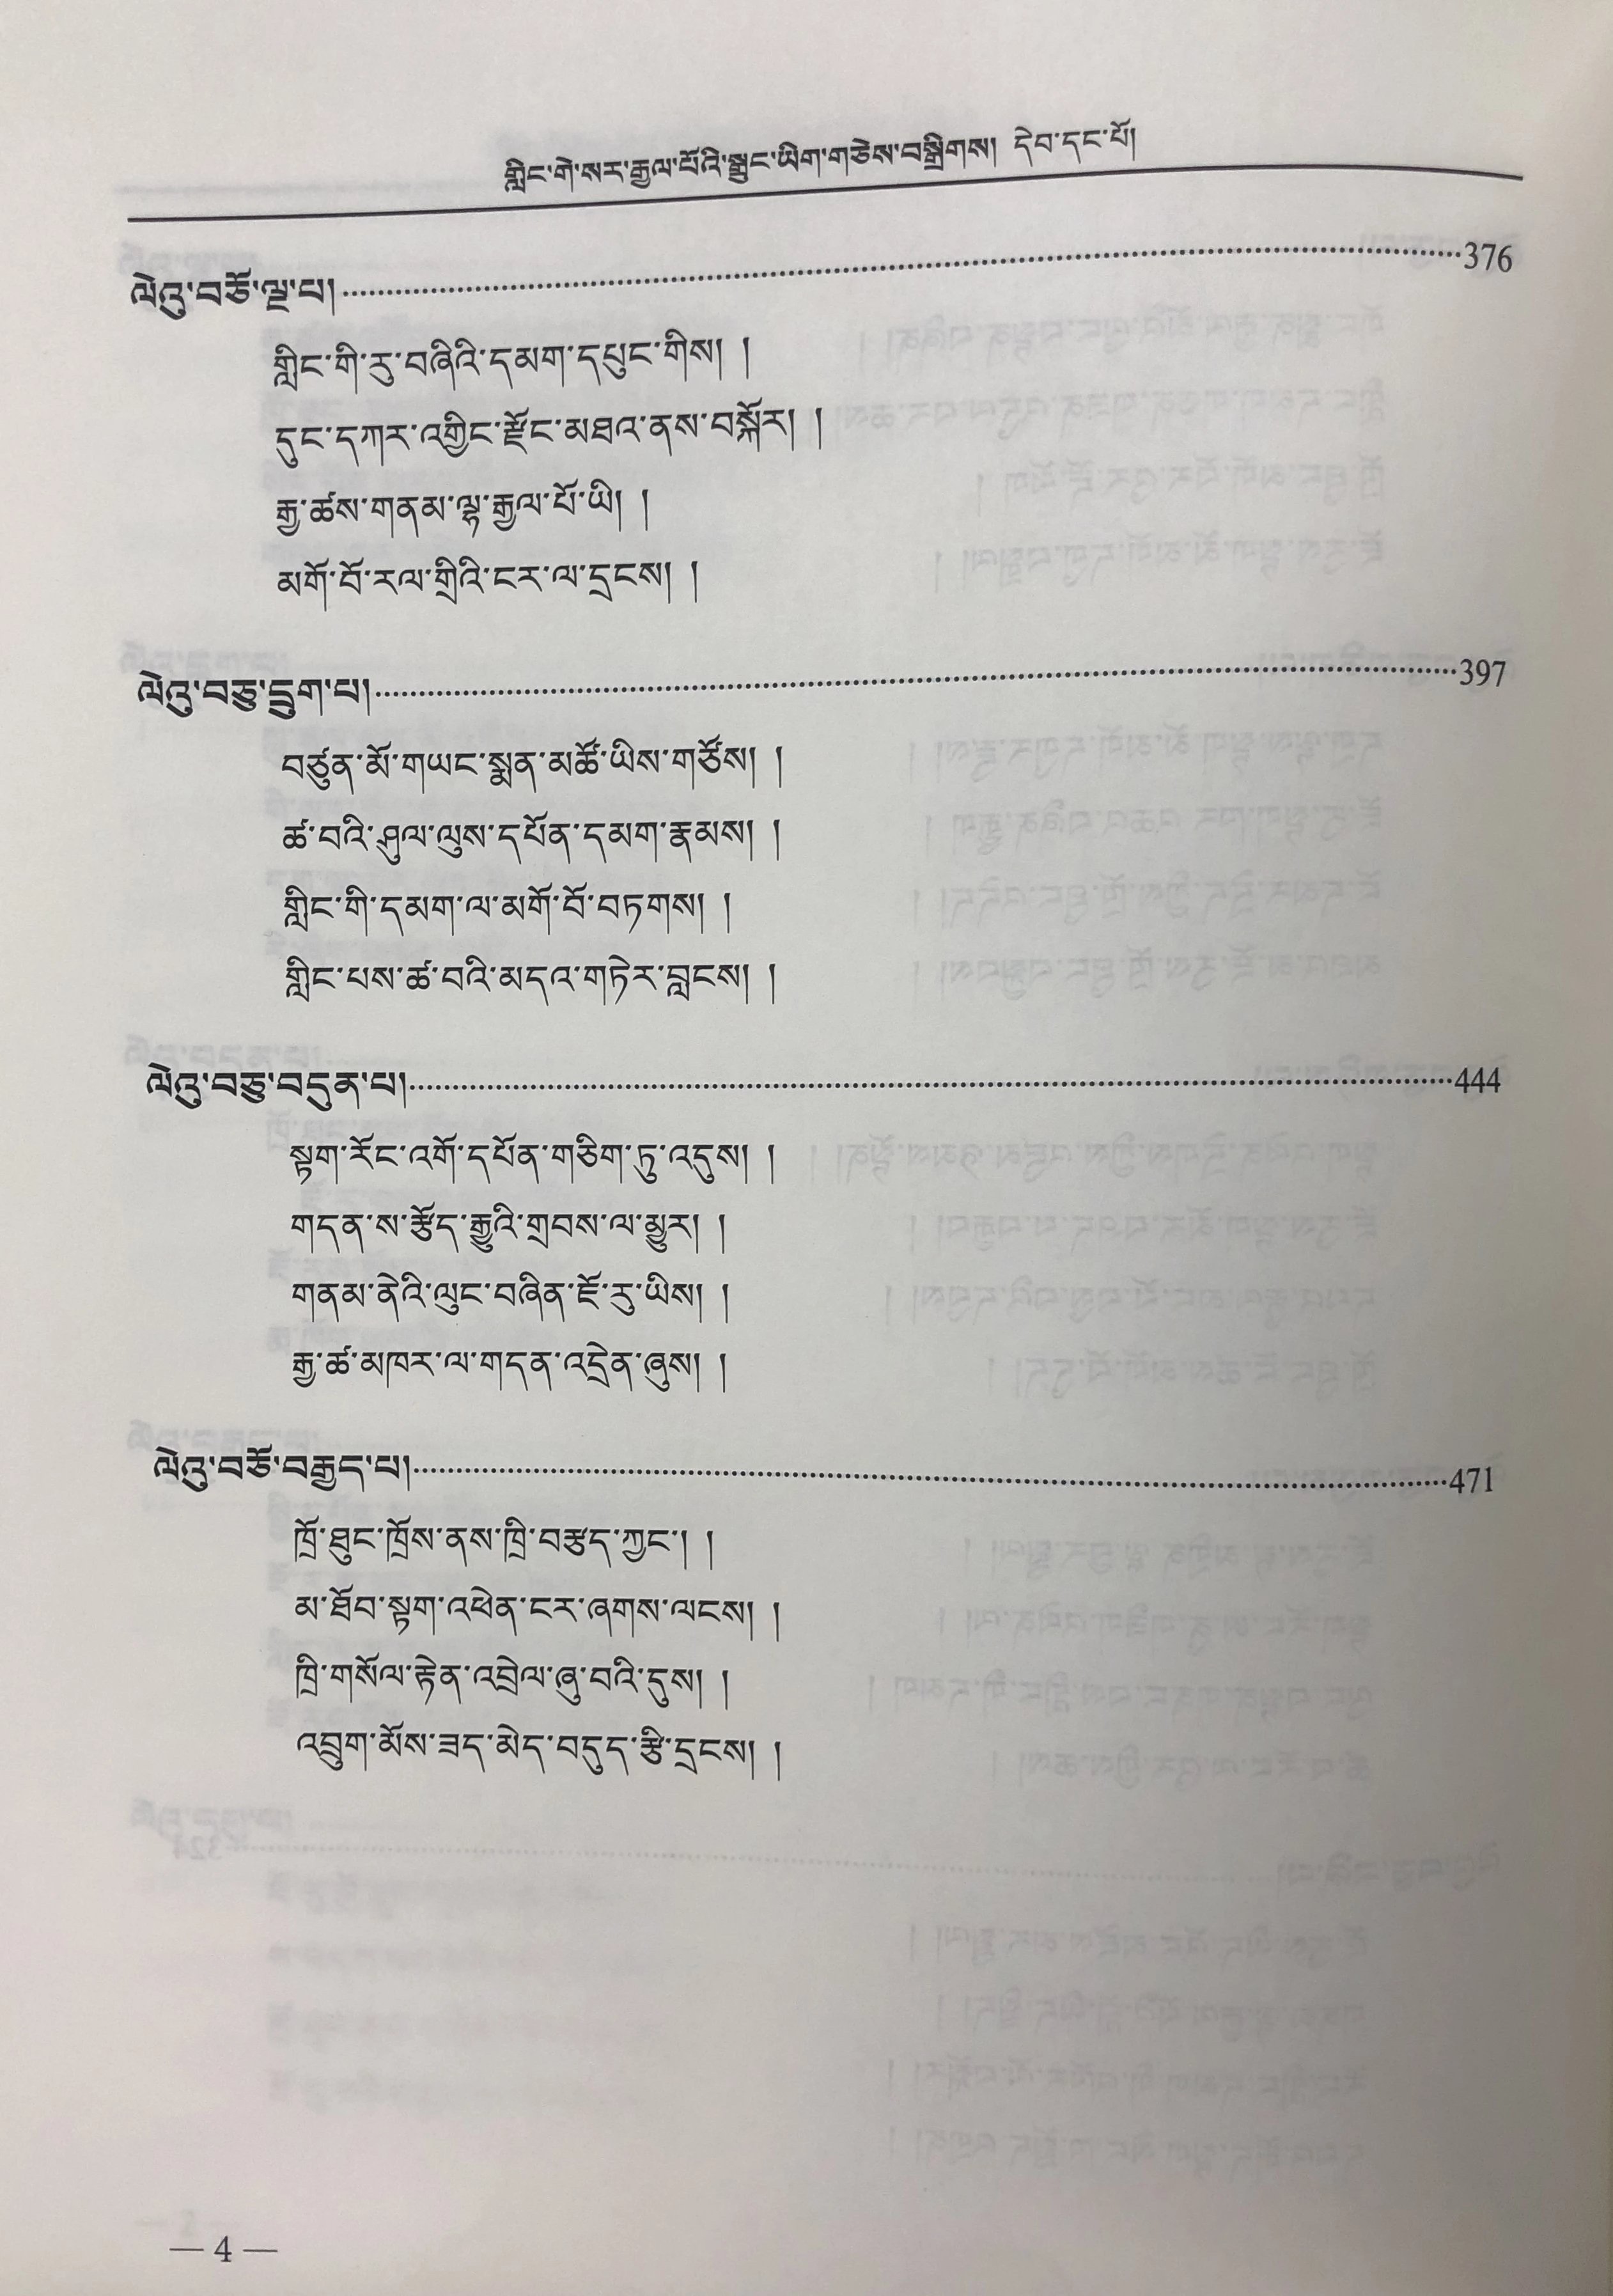 གླིང་གེ་སར་རྒྱལ་པོའི་སྒྲུང་ཡིག་གཅེས་བསྒྲིགས། དེབ་དང་པོ།
ལེའུ་བཅོ་ལྔ་པ།........................376
གླིང་གི་རུ་བཞིའི་དམག་དཔུང་གིས། །
དུང་དཀར་འགྱིང་རྫོང་མཐའ་ནས་བསྐོར། །
རྒྱ་ཚས་གནམ་ལྷ་རྒྱལ་པོ་ཡི། །
མགོ་བོ་རལ་གྲིའི་ངར་ལ་དྲངས། །
ལེའུ་བཅུ་དྲུག་པ།........................397
བཙུན་མོ་གཡང་སྨན་མཚོ་ཡིས་གཙོས། །
ཚ་བའི་ཤུལ་ལུས་དཔོན་དམག་རྣམས། །
གླིང་གི་དམག་ལ་མགོ་བོ་བཏགས། །
གླིང་པས་ཚ་བའི་མདའ་གཏེར་བླངས། །
ལེའུ་བཅུ་བདུན་པ།........................444
སྟག་རོང་འགོ་དཔོན་གཅིག་ཏུ་འདུས། །
གདན་ས་རྩོད་རྒྱུའི་གྲབས་ལ་མྱུར། །
གནམ་ནེའི་ལུང་བཞིན་ཇོ་རུ་ཡིས། །
རྒྱ་ཚ་མཁར་ལ་གདན་འདྲེན་ཞུས། །
ལེའུ་བཅོ་བརྒྱད་པ།........................471
ཁྲོ་ཐུང་ཁྲོས་ནས་ཁྲི་བརྩད་ཀྱང་། །
མ་ཐོབ་སྟག་འཕེན་ངར་ཞགས་ལངས། །
ཁྲི་གསོལ་རྟེན་འབྲེལ་ཞུ་བའི་དུས། །
འབྲུག་མོས་ཟད་མེད་བདུད་རྩི་དྲངས། །
— 4 —